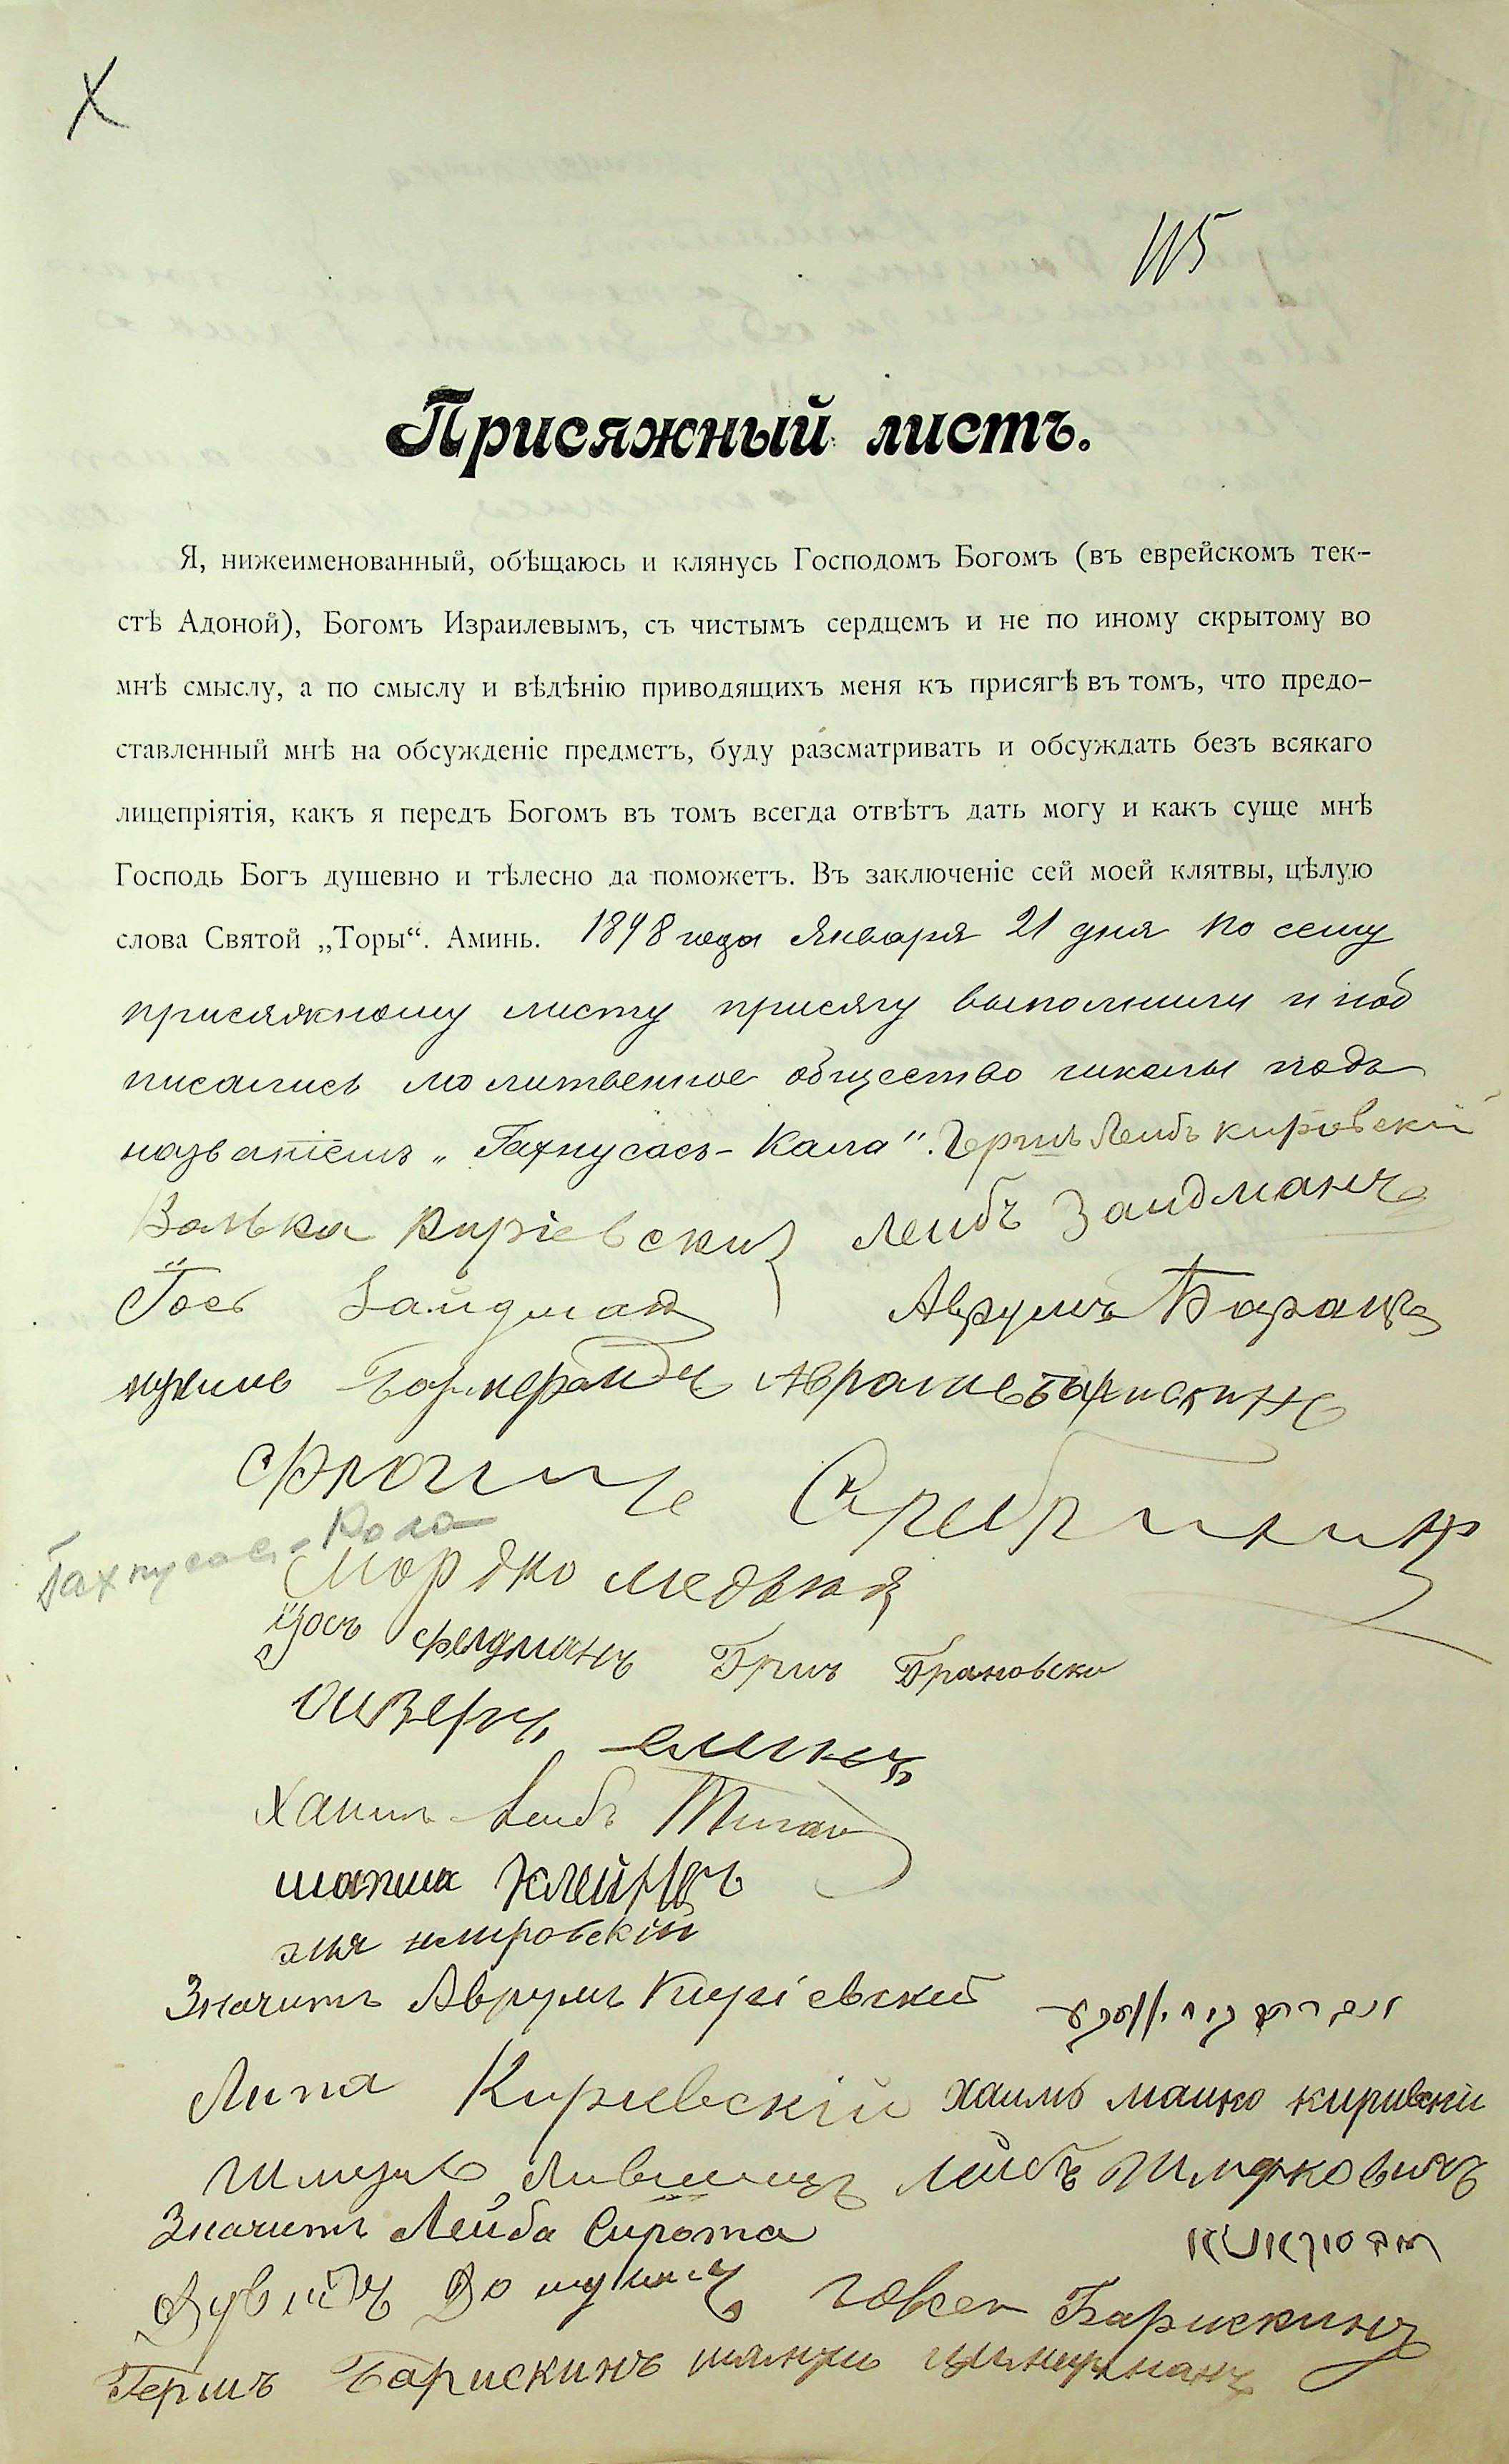 115
Присяжный листъ.
Я, нижеименованный, обѣщаюсь и клянусь Господомъ Богомъ (въ еврейскомъ тек-
стѣ Адоной), Богомъ Израилевымъ, съ чистымъ сердцемъ и не по иному скрытому во
мнѣ смыслу, а по смыслу и вѣдѣнію приводящихъ меня къ присягѣ въ томъ, что предо-
ставленный мнѣ на обсужденіе предметъ, буду разсматривать и обсуждать безъ всякаго
лицепріятія, какъ я передъ Богомъ въ томъ всегда отвѣтъ дать могу и какъ суще мнѣ
Господь Богъ душевно и тѣлесно да поможетъ. Въ заключеніе сей моей клятвы, цѣлую
слова Святой „Торы“. Аминь. 1898 года Января 21 дня по сему
присяжному листу присягу выполнили и под
писались молитвенное общество школы подъ
названіемъ „Гахнусась-Кала". Гершъ Лейбъ кировскій
Волька Киріевский Лейбъ Зайдманъ
Іось Зайдман Аврумъ Баранъ
Аврамъ Барискинъ
Фроимъ
Гахнусась-Кола
Мордко медвня
Іось фелдманъ Брановски
Хаимъ Лейбъ
шапша Клейнъ
эля немировскій
Значитъ Аврумъ Киріевский
Липа Кириевскій хаимъ кириевски
Шмуль Лившицъ Лейбъ Шмулковичъ
Значитъ Лейба Сирота
Барискинъ
Гершъ Барискинъ